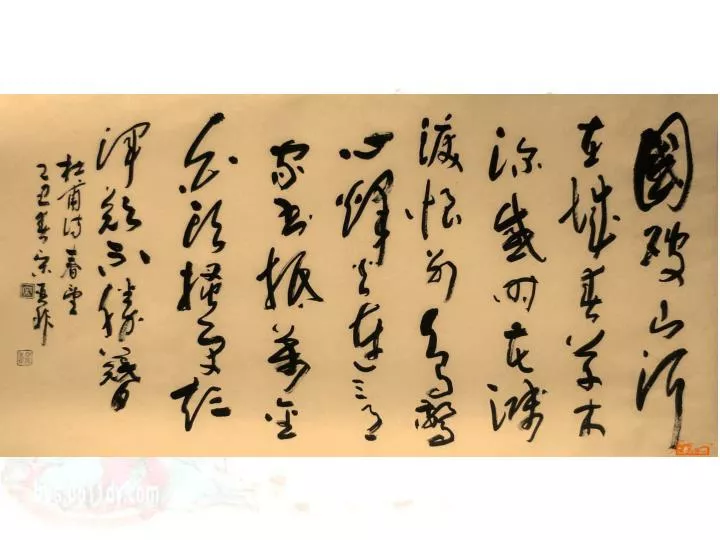 國破山河
在城春草木
深感时花溅
淚恨别鳥驚
心烽火連三月
家书抵萬金
白头搔更短
渾欲不勝簪
杜甫诗春望
丑春